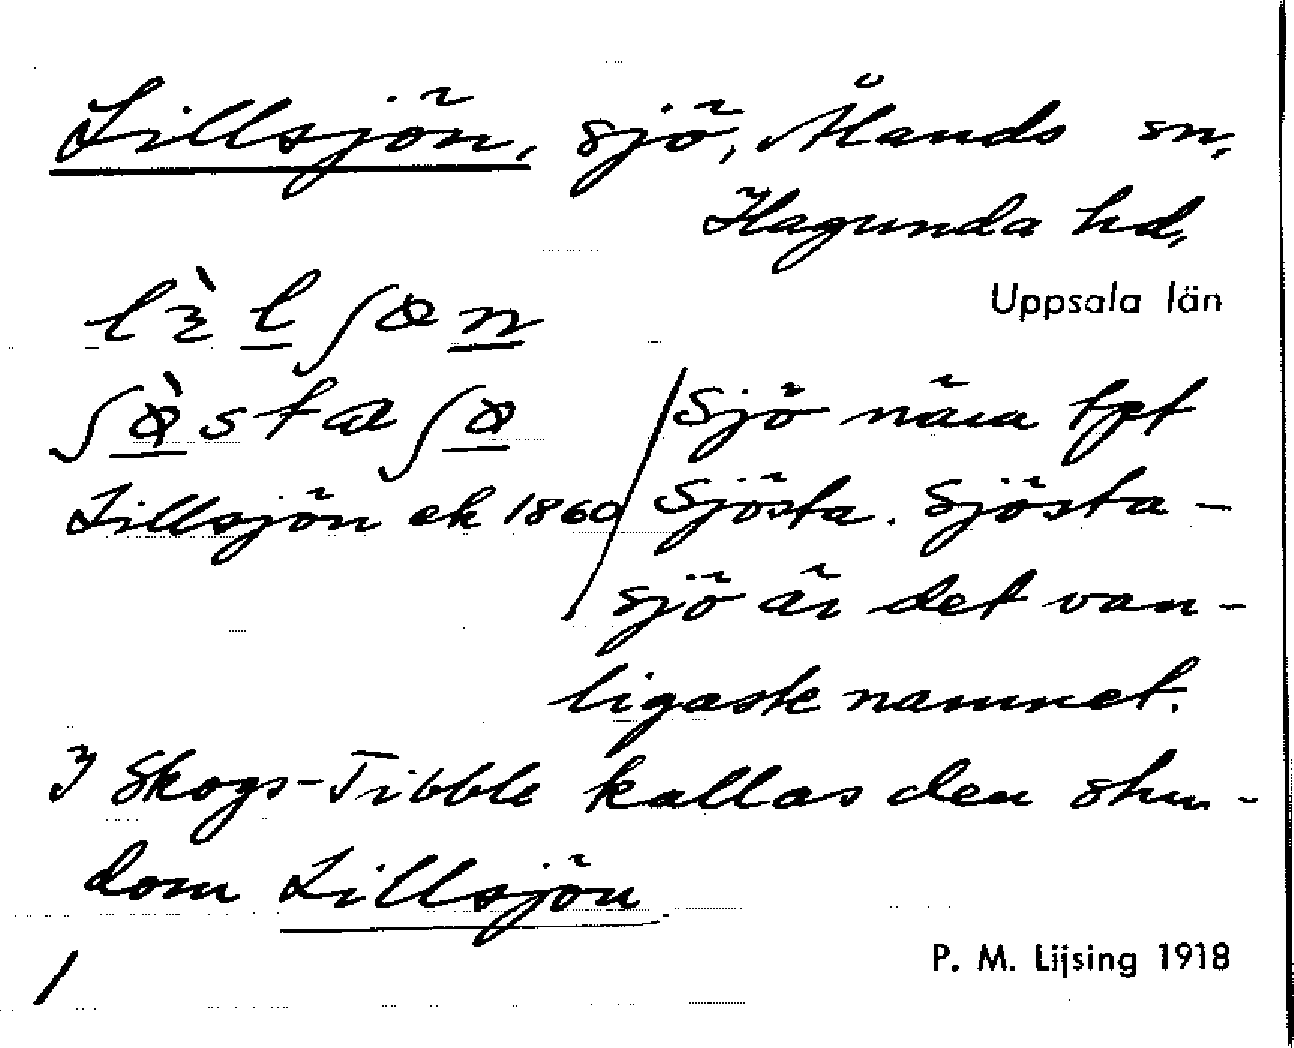 Lillsjön, sjö, Ålands sn,
Hagunda hd,
Uppsala län
Lillsjön ek 1860
Sjö nära tpt
Sjösta. Sjösta-
sjö är det van-
ligaste namnet.
I Skogs-Tibble kallas den stun-
dom Lillsjön
P. M. Lijsing 1918